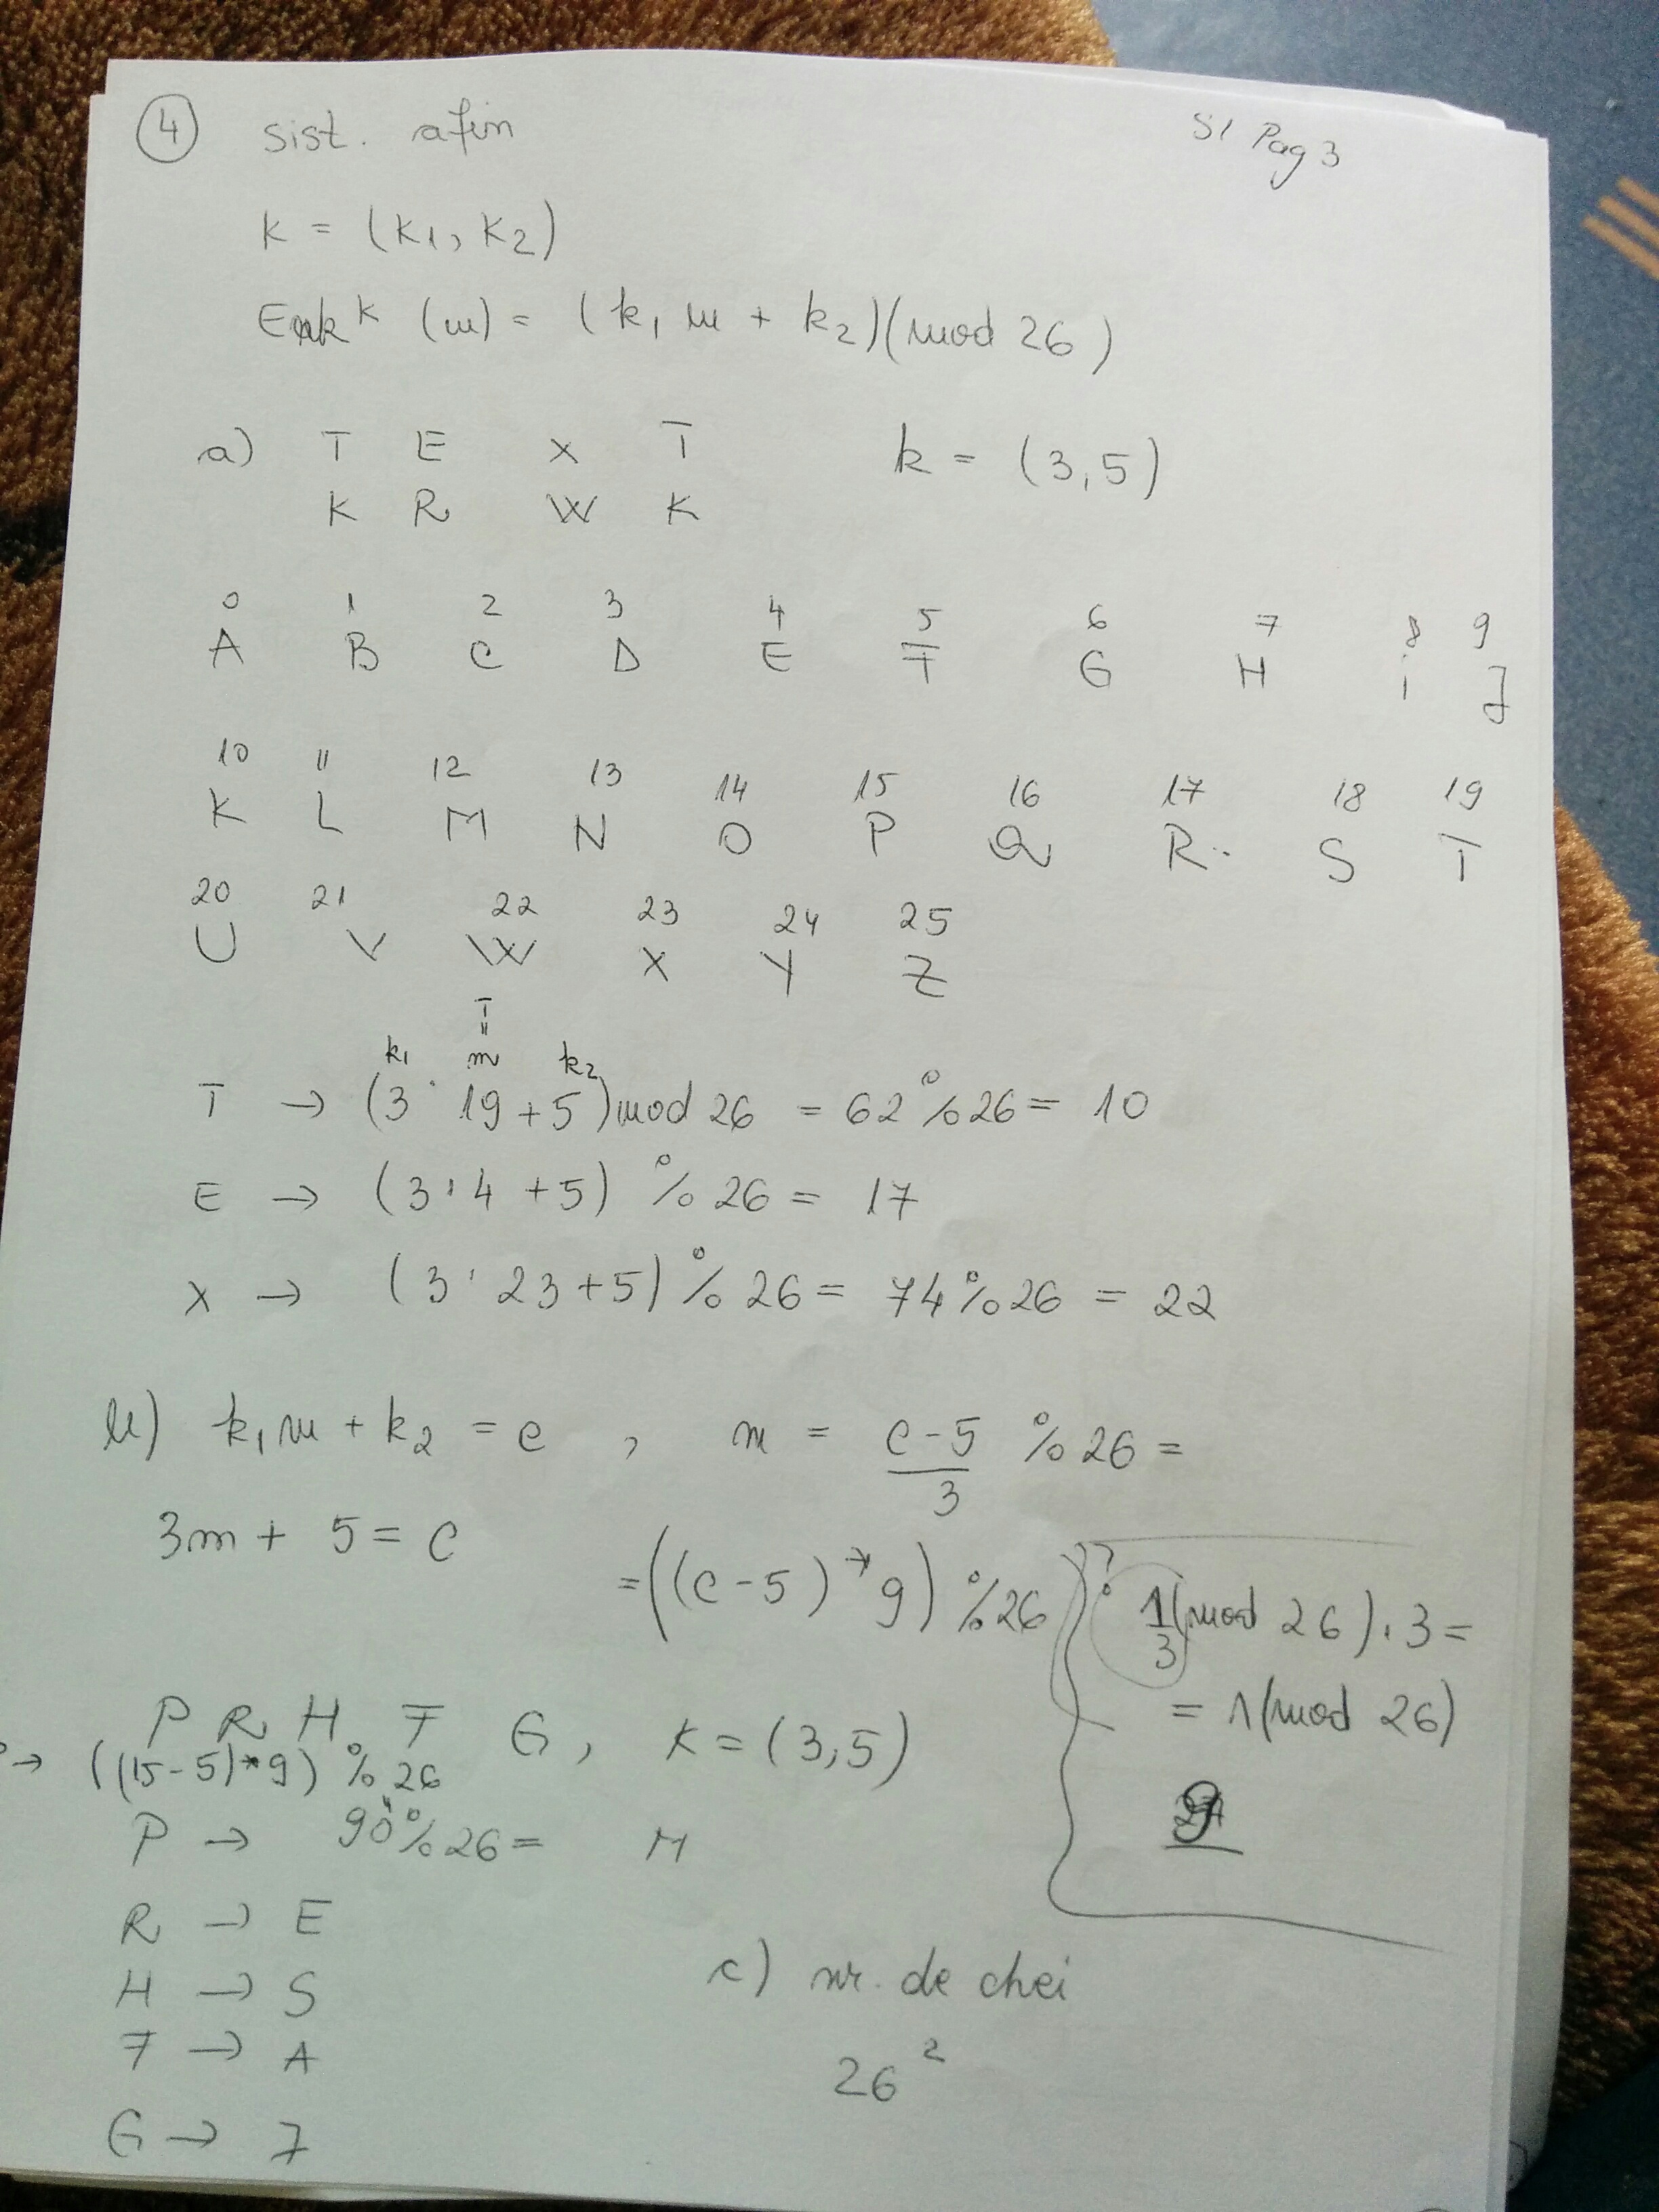 4 sist. afin
S1 Pag 3
k = (k1, k2)
Enk^k (m) = (k1 m + k2)(mod 26)
a) T E X T k = (3,5)
K R W K
0 1 2 3 4 5 6 7 8 9
A B C D E F G H i J
10 11 12 13 14 15 16 17 18 19
K L M N O P Q R S T
20 21 22 23 24 25
U V W X Y Z
T
"
k1 m k2
T → (3 · 19 + 5) mod 26 = 62 % 26 = 10
E → (3 · 4 + 5) % 26 = 17
X → (3 · 23 + 5) % 26 = 74 % 26 = 22
b) k1 m + k2 = c , m = (c - 5)/3 % 26 =
3m + 5 = c
= ((c - 5) * 9) % 26
1/3 (mod 26) · 3 =
= 1 (mod 26)
9
P R H F G , K = (3,5)
→ ((15 - 5) * 9) % 26
"
P → 90 % 26 = M
R → E
H → S
F → A
G → J
c) nr. de chei
26²